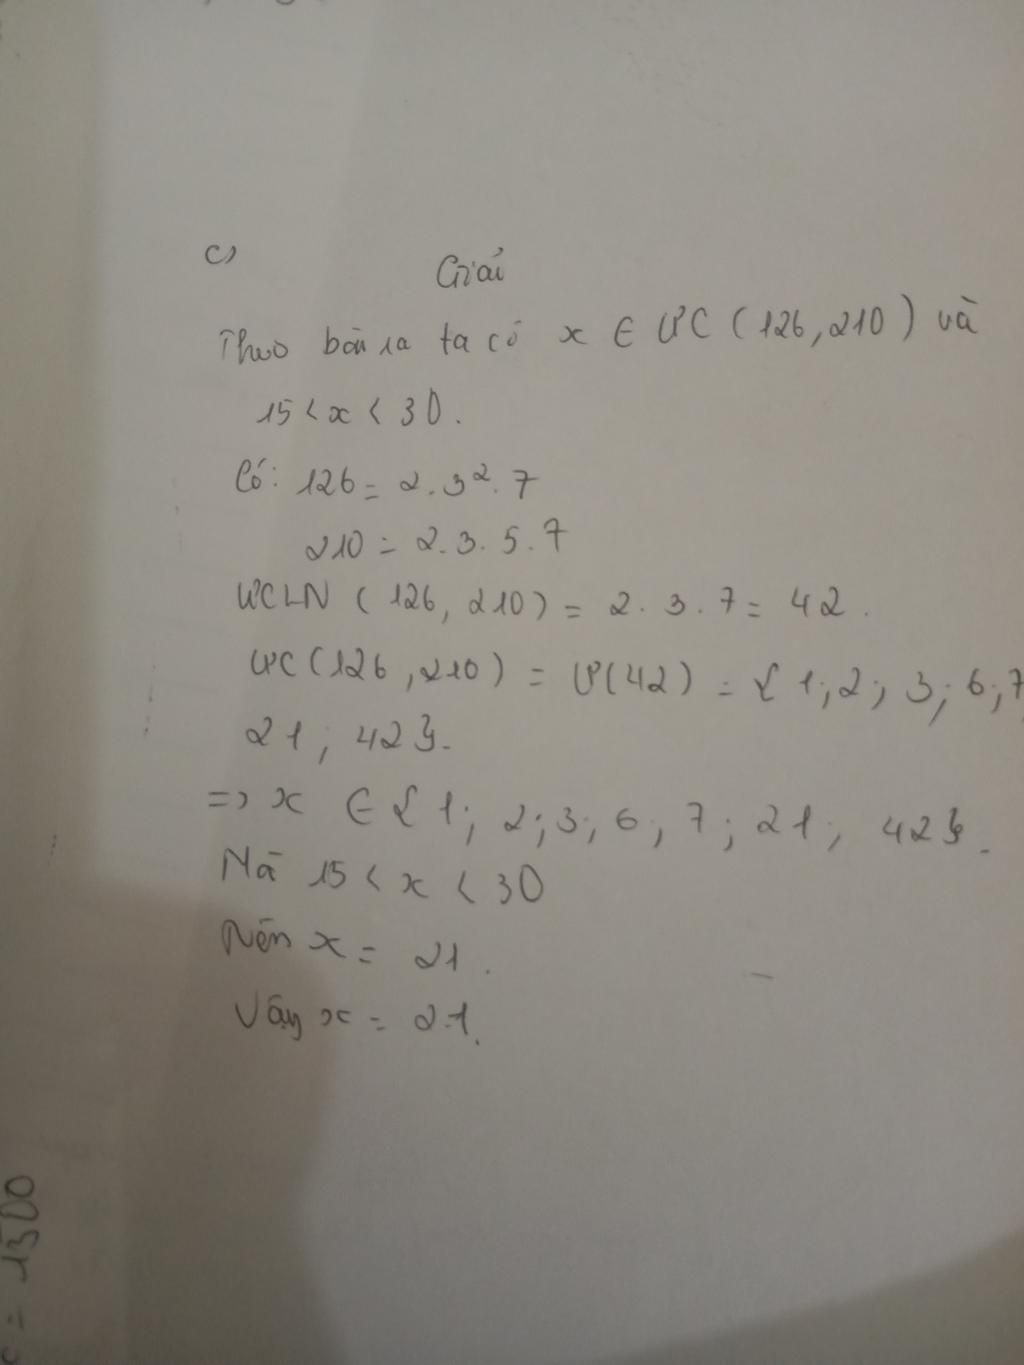 c)
Giải
Theo bài ra ta có x ∈ ƯC (126, 210) và
15 < x < 30.
Có: 126 = 2.3².7
210 = 2.3.5.7
ƯCLN (126, 210) = 2.3.7 = 42.
ƯC (126, 210) = Ư(42) = { 1; 2; 3; 6; 7
21; 42}.
=> x ∈ { 1; 2; 3; 6; 7; 21; 42}.
Mà 15 < x < 30
Nên x = 21.
Vậy x = 21.
= 1500